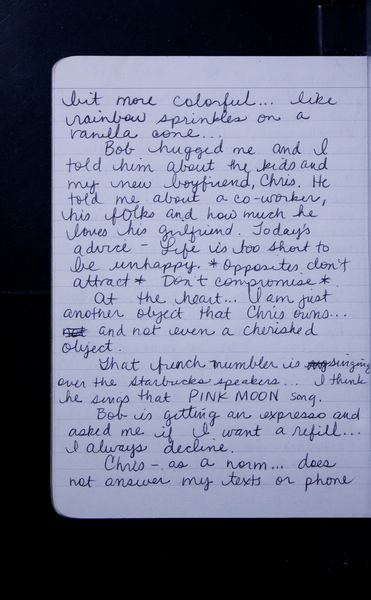 bit more colorful... like
rainbow sprinkles on a
vanilla cone...
Bob hugged me and I
told him about the kids and
my new boyfriend, Chris. He
told me about a co-worker,
his folks and how much he
loves his girlfriend. Today's
advice - Life is too short to
be unhappy. * Opposites don't
attract * Don't compromise *.
At the heart... I am just
another object that Chris owns...
and not even a cherished
object.
That french mumbler is singing
over the Starbucks speakers... I think
he sings that PINK MOON song.
Bob is getting an expresso and
asked me if I want a refill...
I always decline.
Chris - as a norm... does
not answer my texts or phone